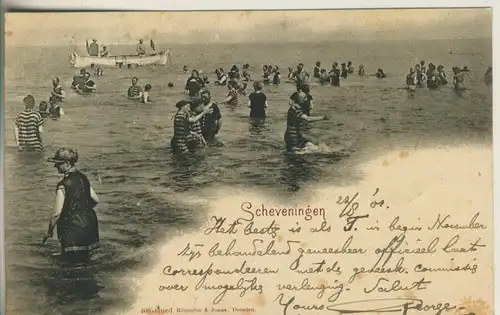 Scheveningen 22/8 '01.
Het beste is als T. in begin November
zijn behandelend geneesheer officieel laat
correspondeeren met de geneesk. commissie
over mogelijke verlenging. Saluut
Yours George.
Römmler & Jonas, Dresden.